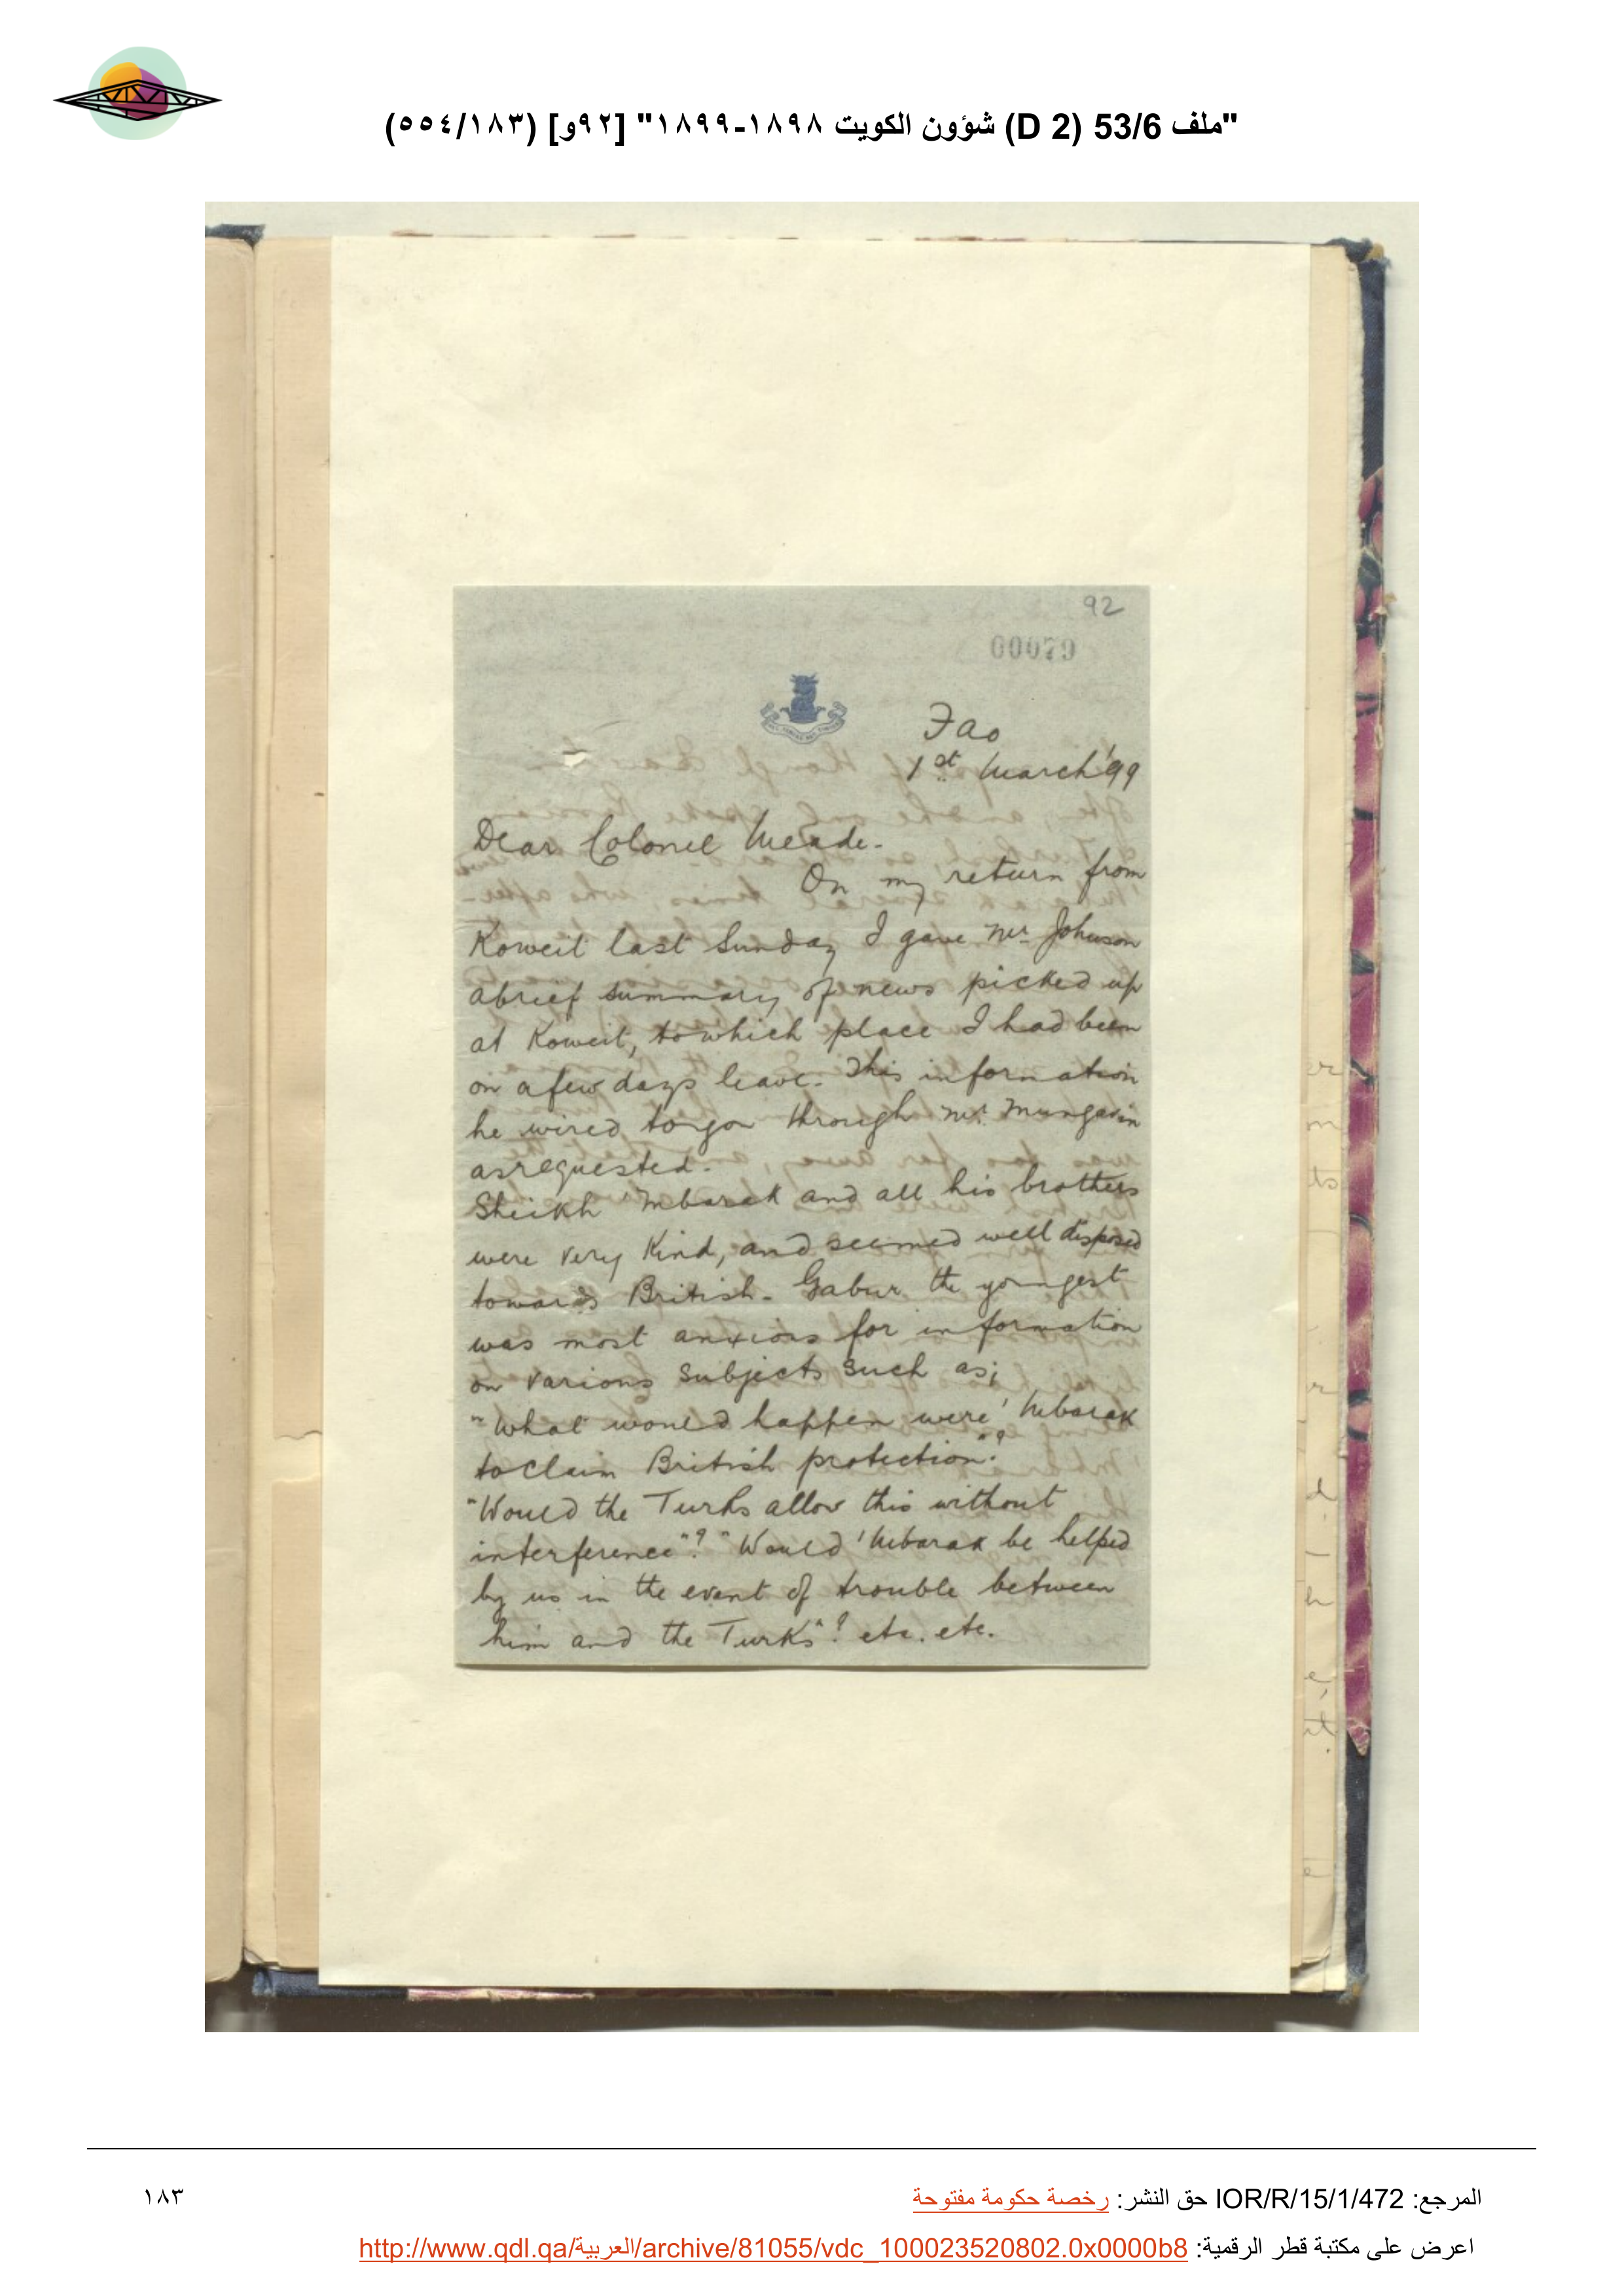 "ملف 53/6 (D 2) شؤون الكويت ١٨٩٨-١٨٩٩" [٩٢و] (٥٥٤/١٨٣)
92
00079
Fao
1st March '99
Dear Colonel Meade.
On my return from
Koweit last Sunday I gave Mr Johnson
a brief summary of news picked up
at Koweit, to which place I had been
on a few days leave. This information
he wired to you through Mr. Mungavin
as requested.
Sheikh 'Mbarak and all his brothers
were very kind, and seemed well disposed
towards British. Gabur the youngest
was most anxious for information
on various subjects such as;
"What would happen were 'Mbarak
to claim British protection"?
"Would the Turks allow this without
interference"? "Would 'Mbarak be helped
by us in the event of trouble between
him and the Turks"? etc. etc.
المرجع: IOR/R/15/1/472 حق النشر: رخصة حكومة مفتوحة
١٨٣
اعرض على مكتبة قطر الرقمية: http://www.qdl.qa/العربية/archive/81055/vdc_100023520802.0x0000b8